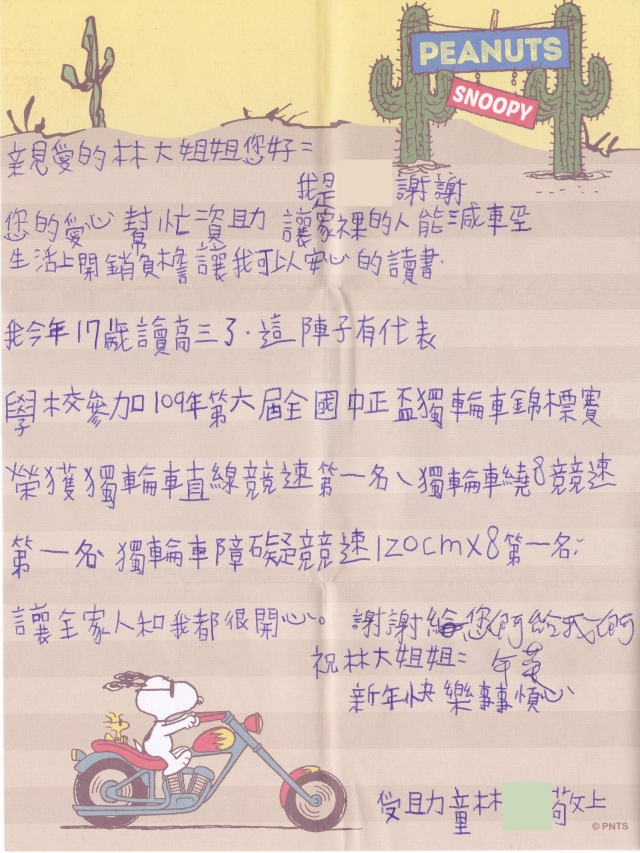 PEANUTS
SNOOPY
親愛的林大姐姐您好:
我是 謝謝
您的愛心幫忙資助 讓家裡的人能減車巠
生活上開銷負擔讓我可以安心的讀書.
我今年17歲讀高三了.這陣子有代表
學校參加109年第六屆全國中正盃獨輪車錦標賽
榮獲獨輪車直線競速第一名、獨輪車繞8競速
第一名 獨輪車障礙競速120cmX8第一名
讓全家人和我都很開心。 謝謝 您們給我們
祝林大姐姐:
新年快樂事事順心
受助童林 敬上
© PNTS